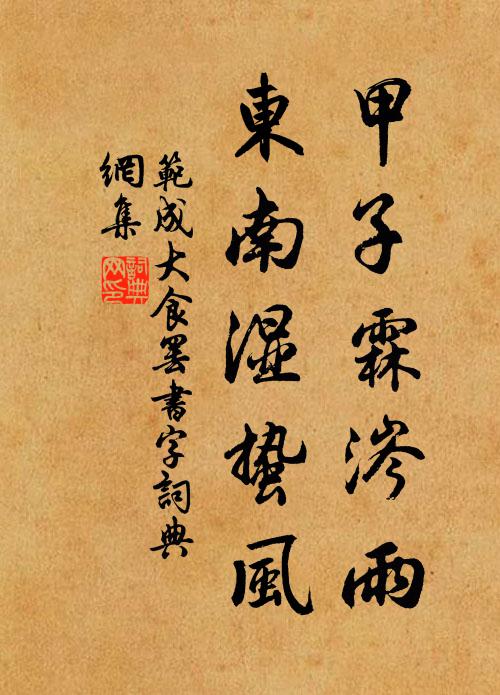 甲子霖涔雨
東南濕蟄風
範成大食罷書字詞典
網集
詞典
网印